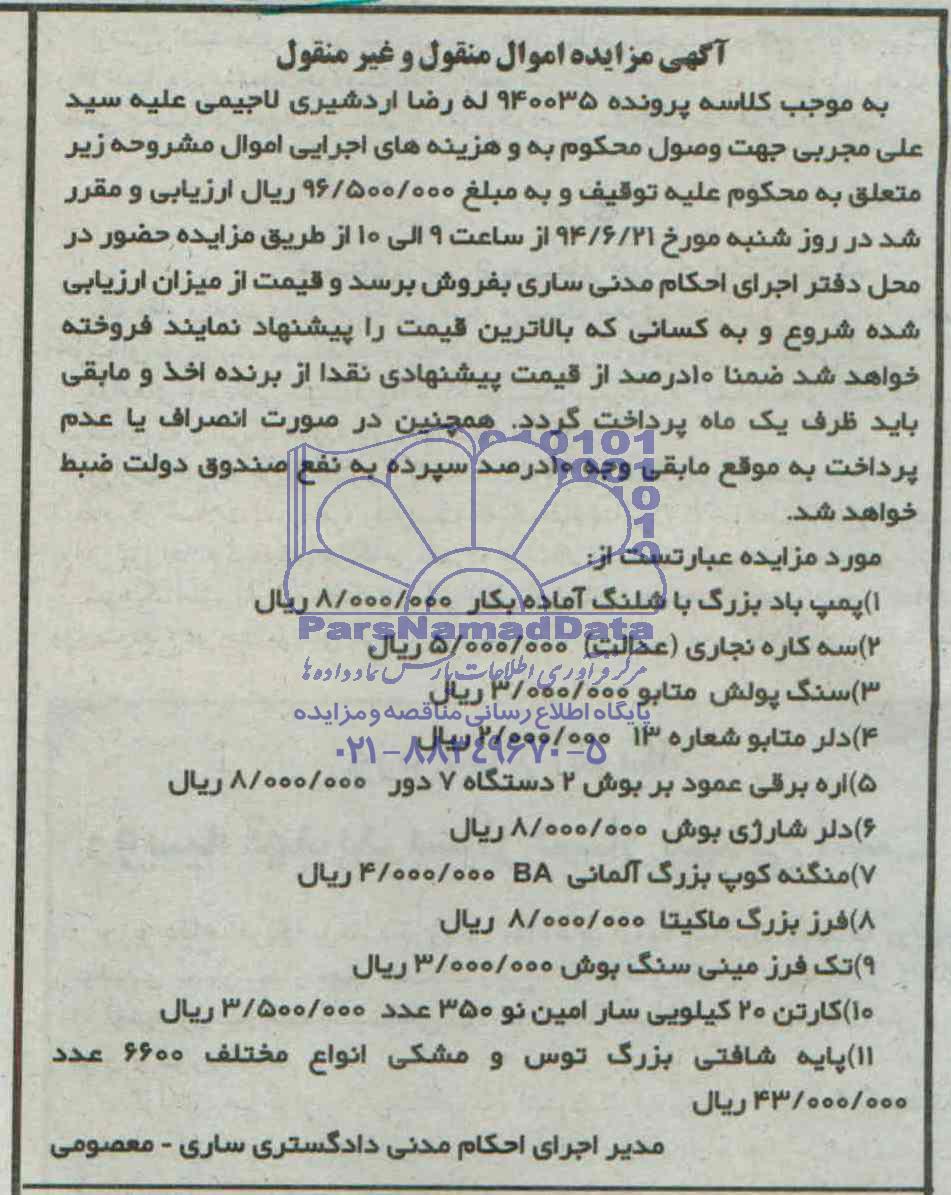 آگهی مزایده اموال منقول و غیر منقول
به موجب کلاسه پرونده ۹۴۰۰۳۵ له رضا اردشیری لاجیمی علیه سید
علی مجربی جهت وصول محکوم به و هزینه های اجرایی اموال مشروحه زیر
متعلق به محکوم علیه توقیف و به مبلغ ۹۶/۵۰۰/۰۰۰ ریال ارزیابی و مقرر
شد در روز شنبه مورخ ۹۴/۶/۲۱ از ساعت ۹ الی ۱۰ از طریق مزایده حضور در
محل دفتر اجرای احکام مدنی ساری بفروش برسد و قیمت از میزان ارزیابی
شده شروع و به کسانی که بالاترین قیمت را پیشنهاد نمایند فروخته
خواهد شد ضمنا ۱۰درصد از قیمت پیشنهادی نقدا از برنده اخذ و مابقی
باید ظرف یک ماه پرداخت گردد. همچنین در صورت انصراف یا عدم
پرداخت به موقع مابقی وجه ۱۰درصد سپرده به نفع صندوق دولت ضبط
خواهد شد.
مورد مزایده عبارتست از:
۱)پمپ باد بزرگ با شلنگ آماده بکار ۸/۰۰۰/۰۰۰ ریال
ParsNamadData
۲)سه کاره نجاری (عدالت) ۵/۰۰۰/۰۰۰ ریال
مرکز فرآوری اطلاعات پارس نماد داده ها
۳)سنگ پولش متابو ۳/۰۰۰/۰۰۰ ریال
پایگاه اطلاع رسانی مناقصه و مزایده
۴)دلر متابو شعاره ۱۳ ۲/۰۰۰/۰۰۰ ریال
۰۲۱-۸۸۳۴۹۶۷۰-۵
۵)اره برقی عمود بر بوش ۲ دستگاه ۷ دور ۸/۰۰۰/۰۰۰ ریال
۶)دلر شارژی بوش ۸/۰۰۰/۰۰۰ ریال
۷)منگنه کوپ بزرگ آلمانی BA ۴/۰۰۰/۰۰۰ ریال
۸)فرز بزرگ ماکیتا ۸/۰۰۰/۰۰۰ ریال
۹)تک فرز مینی سنگ بوش ۳/۰۰۰/۰۰۰ ریال
۱۰)کارتن ۲۰ کیلویی سار امین نو ۳۵۰ عدد ۳/۵۰۰/۰۰۰ ریال
۱۱)پایه شافتی بزرگ توس و مشکی انواع مختلف ۶۶۰۰ عدد
۴۳/۰۰۰/۰۰۰ ریال
مدیر اجرای احکام مدنی دادگستری ساری - معصومی